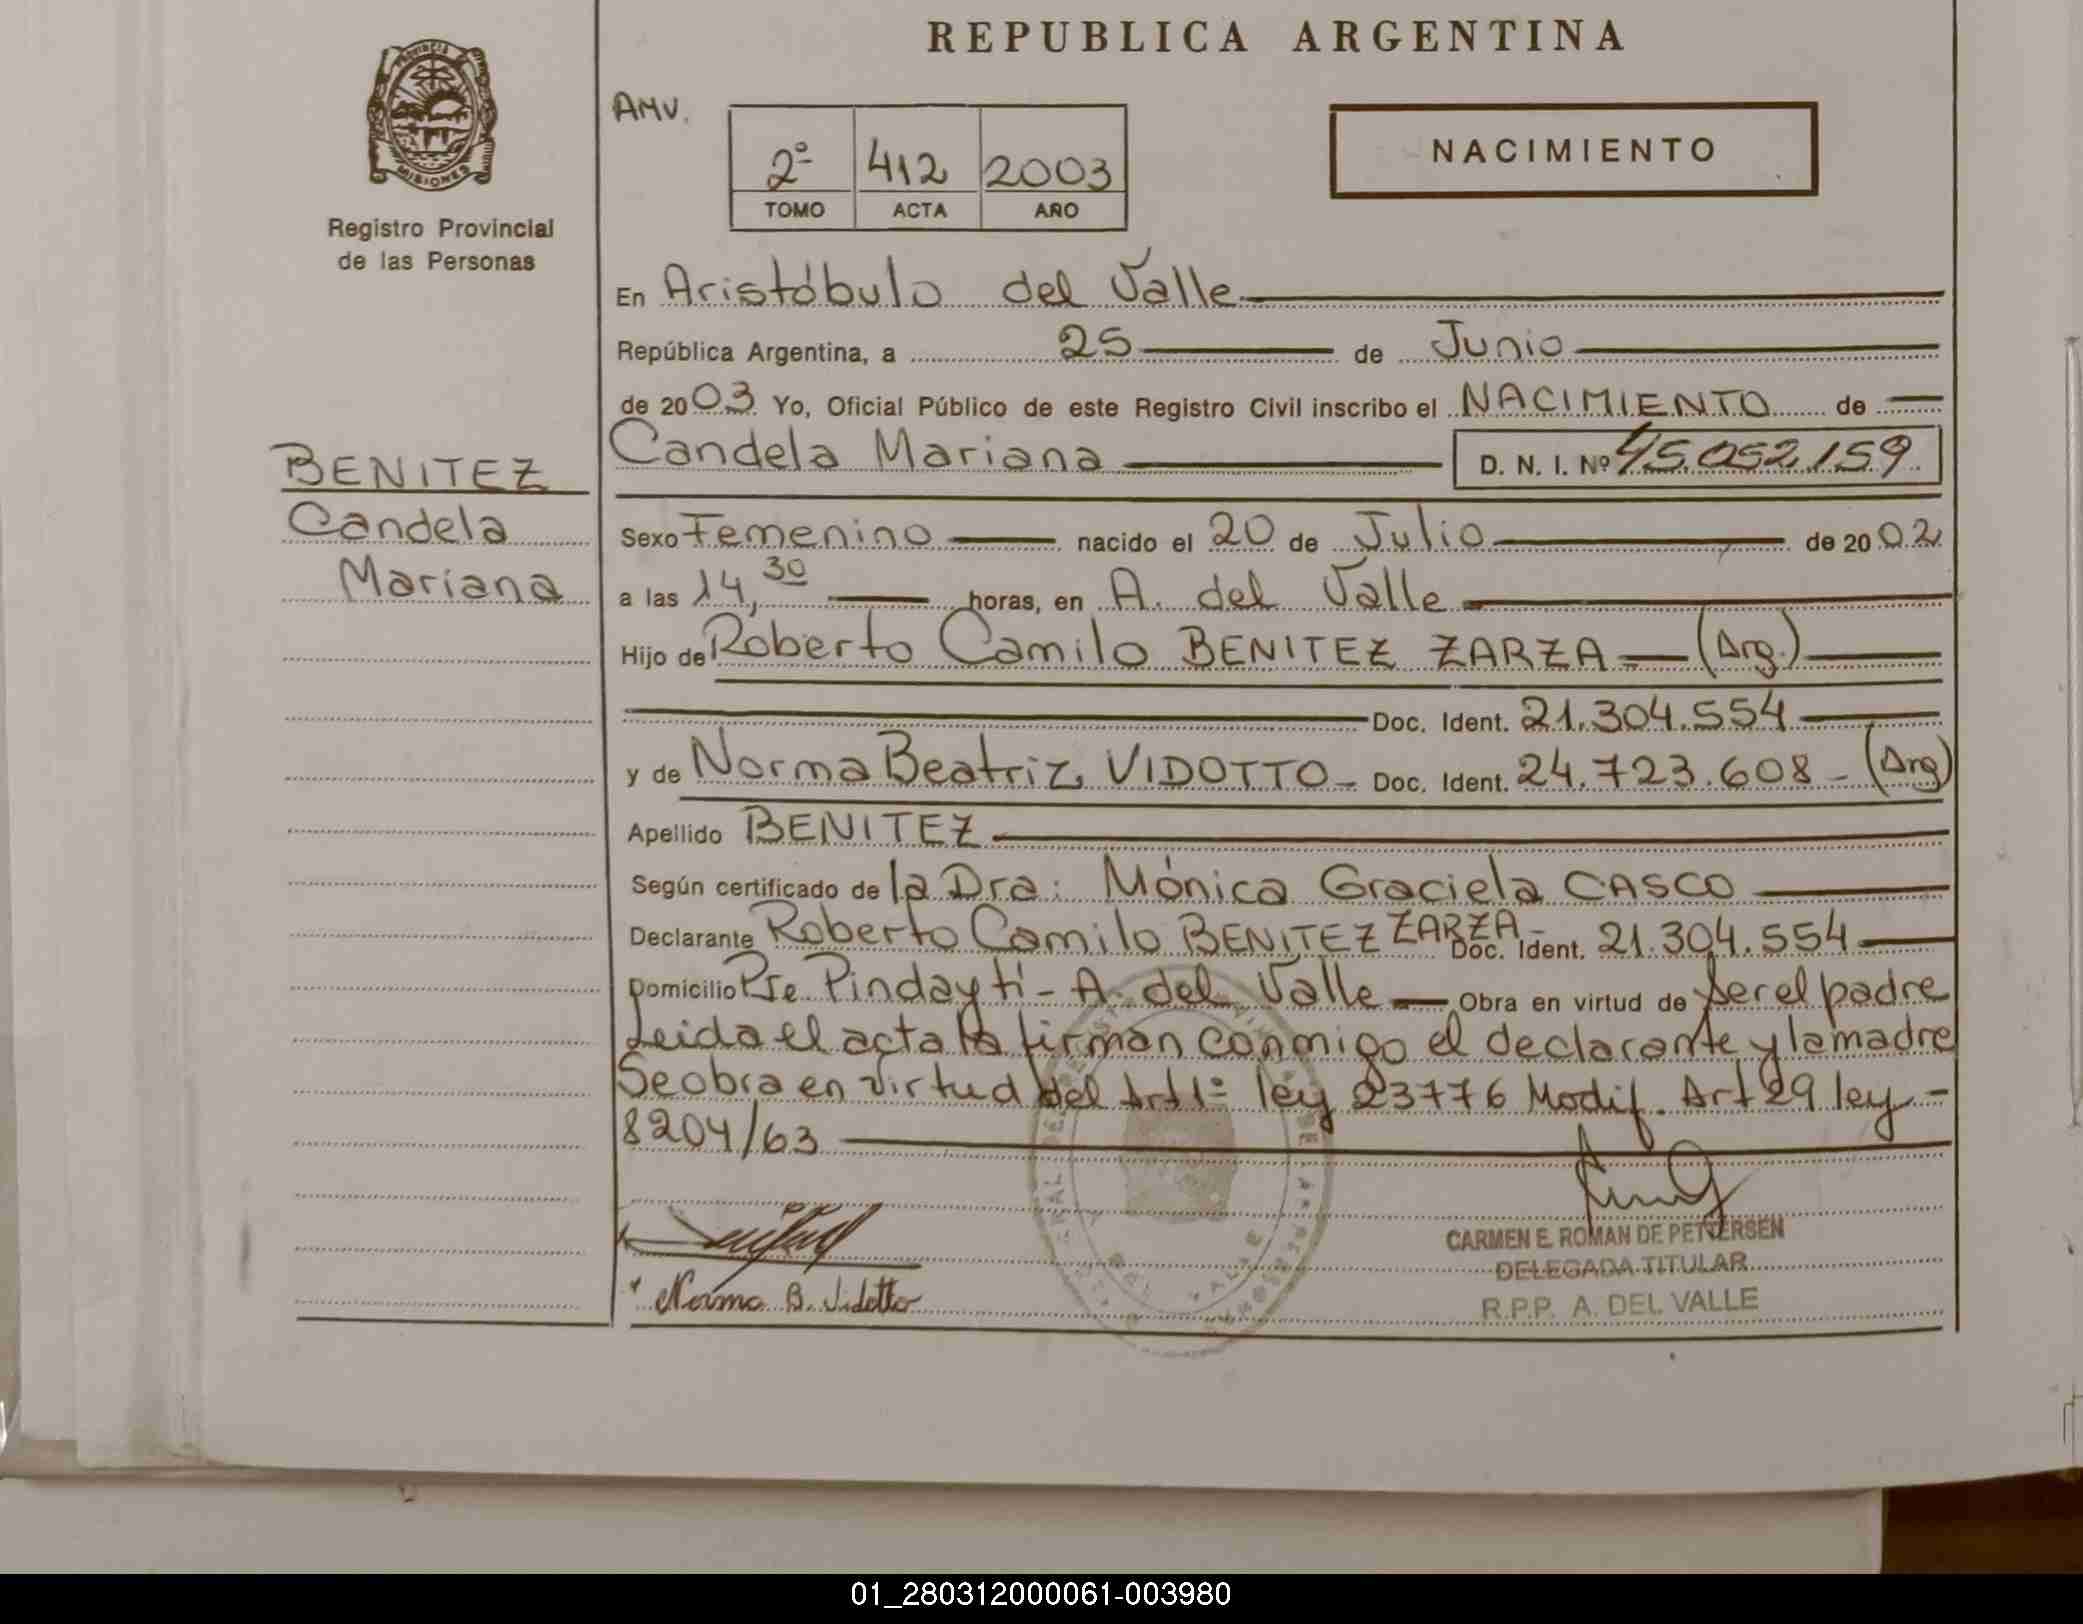 REPUBLICA ARGENTINA
PROVINCIA
MISIONES
Registro Provincial
de las Personas
AMV.
2º 412 2003
TOMO ACTA AÑO
NACIMIENTO
En Aristóbulo del Valle
República Argentina, a 25 de Junio
de 2003 Yo, Oficial Público de este Registro Civil inscribo el NACIMIENTO de
Candela Mariana D. N. I. Nº 45.052.159
BENITEZ
Candela
Mariana
Sexo Femenino nacido el 20 de Julio de 2002
a las 14,30 horas, en A. del Valle
Hijo de Roberto Camilo BENITEZ ZARZA (Arg.)
Doc. Ident. 21.304.554
y de Norma Beatriz VIDOTTO - Doc. Ident. 24.723.608 - (Arg)
Apellido BENITEZ
Según certificado de la Dra: Mónica Graciela CASCO
Declarante Roberto Camilo BENITEZ ZARZA - Doc. Ident. 21.304.554
Domicilio Pje. Pindaytí - A. del Valle Obra en virtud de ser el padre
Leida el acta la firman conmigo el declarante y la madre
Se obra en virtud del Art 1º ley 23776 Modif. Art 29 ley -
8204/63
CARMEN E. ROMAN DE PETTERSEN
DELEGADA TITULAR
R.P.P. A. DEL VALLE
Norma B. Vidotto
01_280312000061-003980